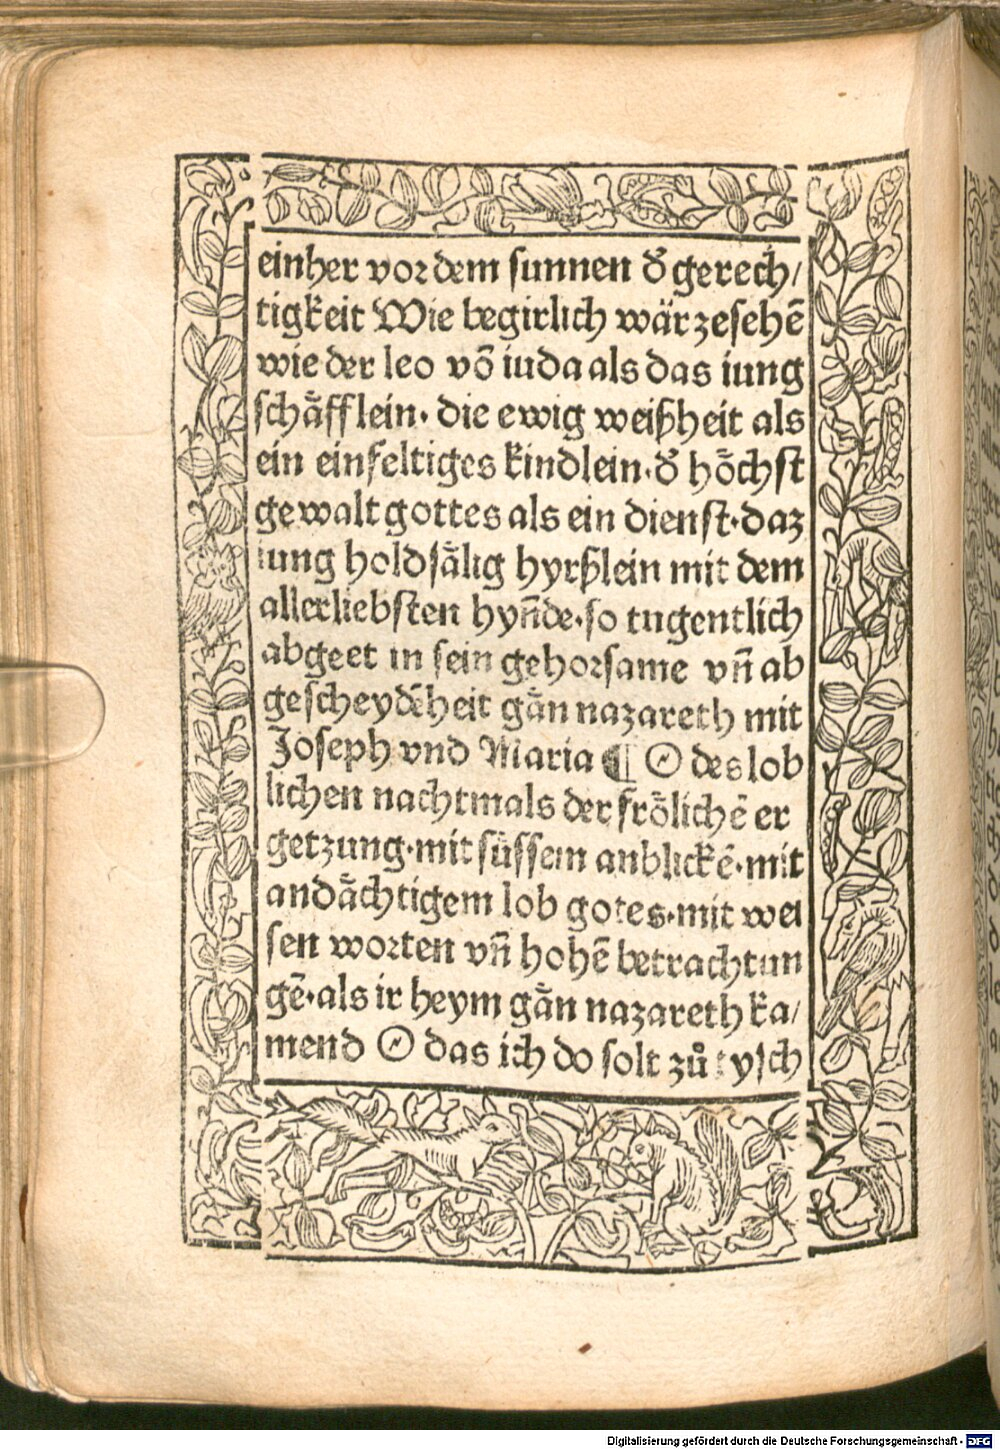 einher vor dem sunnen d̕ gerech/
tigkeit Wie begirlich wär zesehē
wie der leo vō iuda als das iung
schäfflein· die ewig weißheit als
ein einfeltiges kindlein·d̕ höchst
gewalt gottes als ein dienst·daz
iung holdsälig hyrßlein mit dem
allerliebsten hyn̄de·so tugentlich
abgeet in sein gehorsame vn̄ ab
gescheydēheit gän nazareth mit
Joseph vnd Maria ¶ O des lob
lichen nachtmals der frölichē er
getzung·mit süssem anblickē·mit
andächtigem lob gotes·mit wei
sen worten vn̄ hohē betrachtun
gē·als ir heym gän nazareth ka/
mend O das ich do solt zů tysch
Digitalisierung gefördert durch die Deutsche Forschungsgemeinschaft - DFG